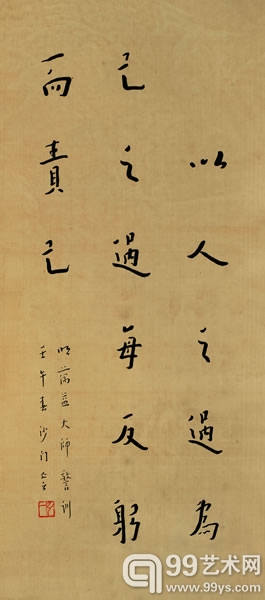 以人之過為
己之過每反躬
而責己
明蕅益大師警訓
壬午春沙門
99艺术网
www.99ys.com